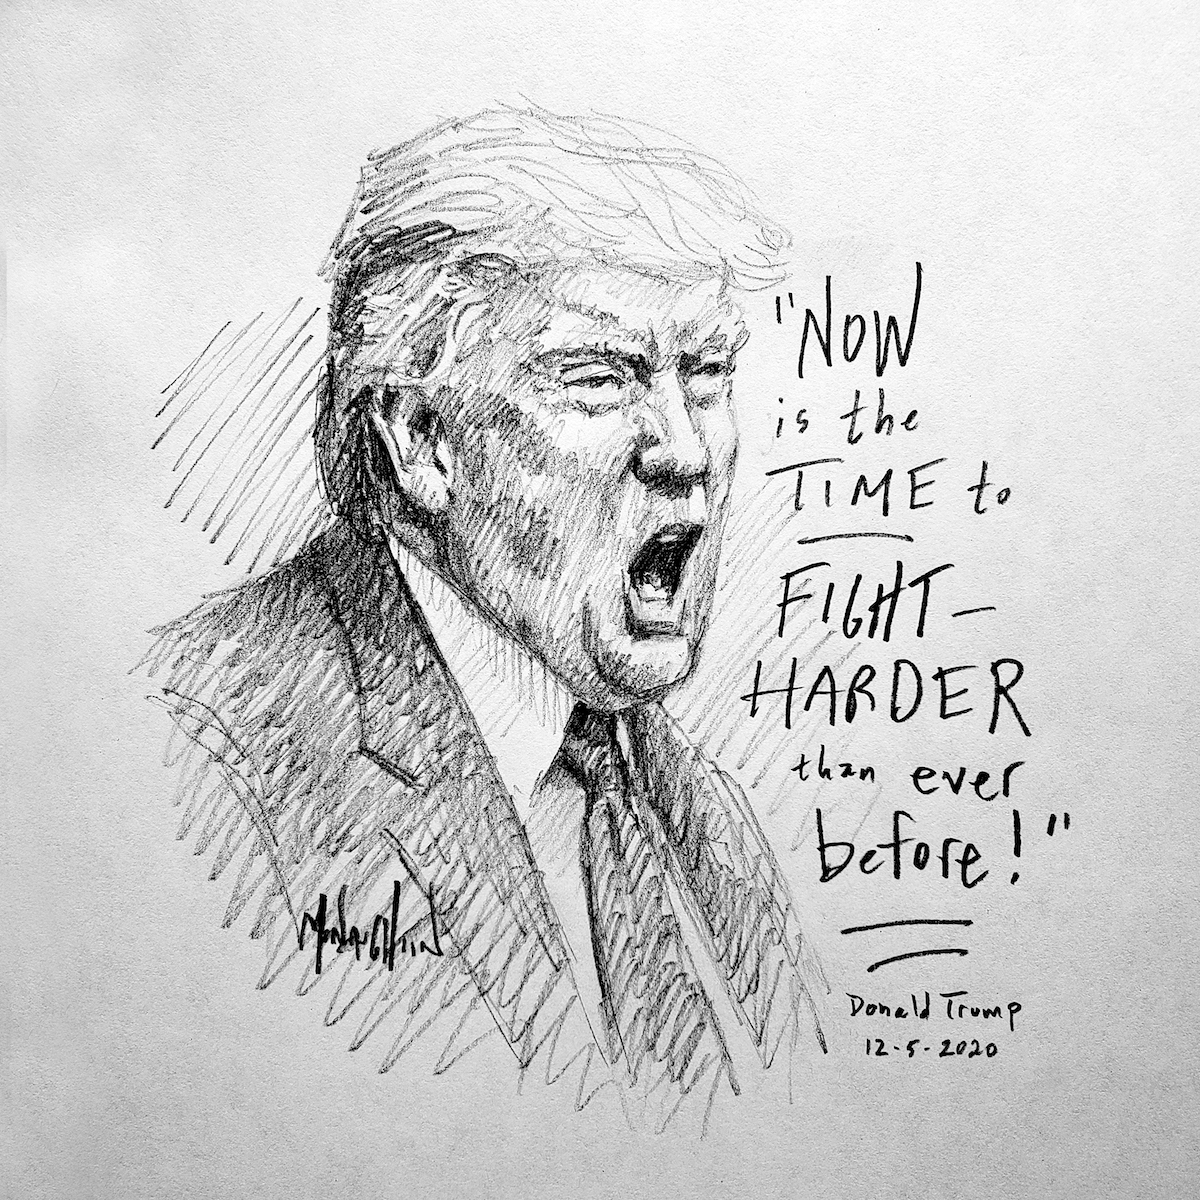 "NOW
is the
TIME to
FIGHT-
HARDER
than ever
before!"
Donald Trump
12-5-2020